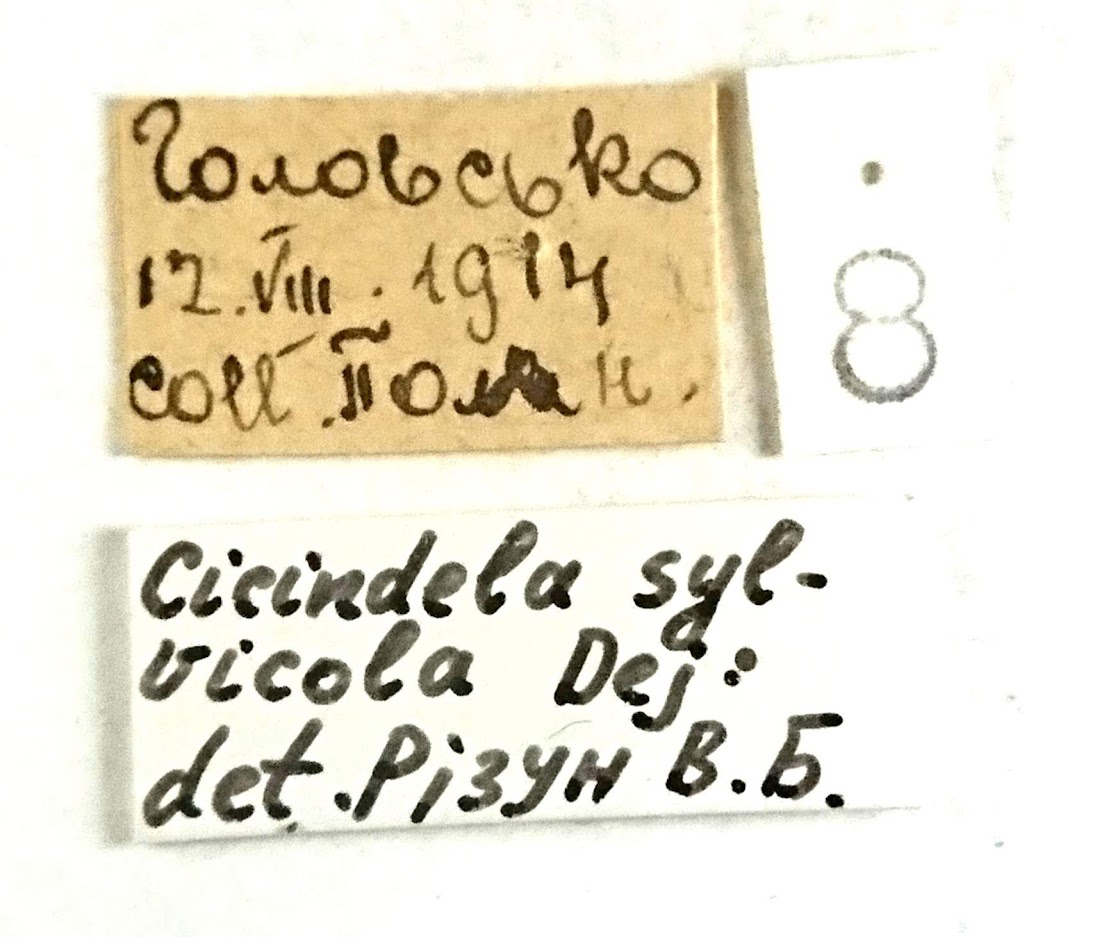 Головсько
12.VIII. 1914
coll.
8
Cicindela syl-
vicola Dej.
det. Різун В.Б.